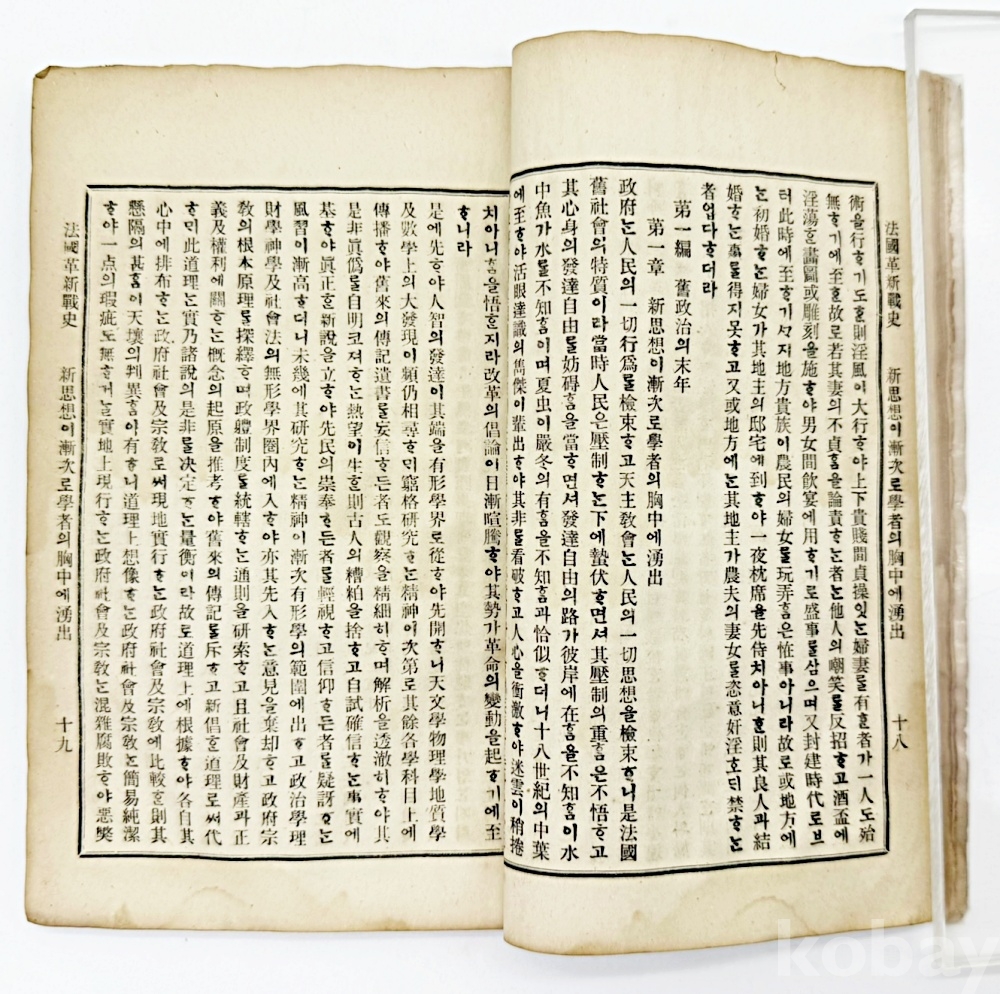 法國革新戰史 新思想이漸次로學者의胸中에湧出 十八
術을行ᄒᆞ기도ᄒᆞᆫ則淫風이大行ᄒᆞ야上下貴賤間貞操잇ᄂᆞᆫ婦妻를有ᄒᆞᆫ者가一人도殆
無ᄒᆞ기에至ᄒᆞᆫ故로若其妻의不貞홈을論責ᄒᆞᄂᆞᆫ者ᄂᆞᆫ他人의嘲笑를反招ᄒᆞ고酒盃에
淫蕩ᄒᆞᆫ畵圖或雕刻을施ᄒᆞ야男女間飮宴에用ᄒᆞ기로盛事를삼으며又封建時代로브
터此時에至ᄒᆞ기ᄭᆞ지地方貴族이農民의婦女를玩弄홈은恠事아니라故로或地方에
ᄂᆞᆫ初婚ᄒᆞᄂᆞᆫ婦女가其地主의邸宅에到ᄒᆞ야一夜枕席을先侍치아니ᄒᆞᆫ則其良人과結
婚ᄒᆞᄂᆞᆫ事를得지못ᄒᆞ고又或地方에ᄂᆞᆫ其地主가農夫의妻女를恣意奸淫호ᄃᆡ禁ᄒᆞᄂᆞᆫ
者업다ᄒᆞ더라
第一編 舊政治의末年
第一章 新思想이漸次로學者의胸中에湧出
政府ᄂᆞᆫ人民의一切行爲를檢束ᄒᆞ고天主敎會ᄂᆞᆫ人民의一切思想을檢束ᄒᆞ니是法國
舊社會의特質이라當時人民은壓制ᄒᆞᄂᆞᆫ下에蟄伏ᄒᆞ면셔其壓制의重홈은不悟ᄒᆞ고
其心身의發達自由를妨碍홈을當ᄒᆞ면셔發達自由의路가彼岸에在홈을不知홈이水
中魚가水를不知홈이며夏虫이嚴冬의有홈을不知홈과恰似ᄒᆞ더니十八世紀의中葉
에至ᄒᆞ야活眼達識의雋傑이輩出ᄒᆞ야其非를看破ᄒᆞ고人心을衝激ᄒᆞ야迷雲이稍捲
치아니홈을悟ᄒᆞᆫ지라改革의倡論이日漸喧騰ᄒᆞ야其勢가革命의變動을起ᄒᆞ기에至
ᄒᆞ니라
是에先ᄒᆞ야人智의發達이其端을有形學界로從ᄒᆞ야先開ᄒᆞ니天文學物理學地質學
及數學上의大發現이頻仍相尋ᄒᆞᄆᆡ窮格硏究ᄒᆞᄂᆞᆫ精神이次第로其餘各學科目上에
傳播ᄒᆞ야舊來의傳記遺書를妄信ᄒᆞ든者도觀察을精細히ᄒᆞ며解析을透澈히ᄒᆞ야其
是非眞僞를自明코져ᄒᆞᄂᆞᆫ熱望이生ᄒᆞᆫ則古人의糟粕을捨ᄒᆞ고自試確信ᄒᆞᄂᆞᆫ事實에
基ᄒᆞ야眞正ᄒᆞᆫ新說을立ᄒᆞ야先民의崇奉ᄒᆞ든者를輕視ᄒᆞ고信仰ᄒᆞ든者를疑訝ᄒᆞᄂᆞᆫ
風習이漸高ᄒᆞ더니未幾에其硏究ᄒᆞᄂᆞᆫ精神이漸次有形學의範圍에出ᄒᆞ고政治學理
財學神學及社會法의無形學界圈內에入ᄒᆞ야亦其先入ᄒᆞᄂᆞᆫ意見을棄却ᄒᆞ고政府宗
敎의根本原理를探繹ᄒᆞ며政體制度를統轄ᄒᆞᄂᆞᆫ通則을硏索ᄒᆞ고且社會及財產과正
義及權利에關ᄒᆞᄂᆞᆫ槪念의起原을推考ᄒᆞ야舊來의傳記를斥ᄒᆞ고新倡ᄒᆞᆫ道理로ᄡᅥ代
ᄒᆞᄆᆡ此道理ᄂᆞᆫ實乃諸說의是非를決定ᄒᆞᄂᆞᆫ量衡이라故로道理上에根據ᄒᆞ야各自其
心中에排布ᄒᆞᄂᆞᆫ政府社會及宗敎로ᄡᅥ現地實行ᄒᆞᄂᆞᆫ政府社會及宗敎에比較ᄒᆞᆫ則其
懸隔의甚홈이天壤의判異홈이有ᄒᆞ니道理上想像ᄒᆞᄂᆞᆫ政府社會及宗敎ᄂᆞᆫ簡易純潔
ᄒᆞ야一点의瑕疵도無ᄒᆞ거ᄂᆞᆯ實地上現行ᄒᆞᄂᆞᆫ政府社會及宗敎ᄂᆞᆫ混雜腐敗ᄒᆞ야惡獘
法國革新戰史 新思想이漸次로學者의胸中에湧出 十九
kobay